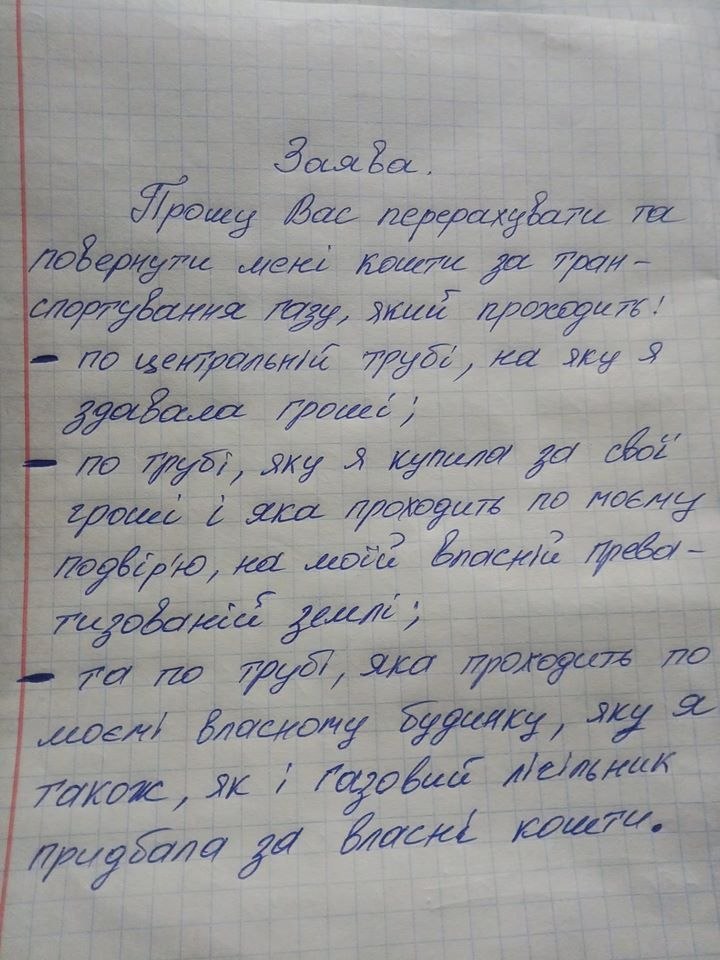 Заява.
Прошу Вас перерахувати та
повернути мені кошти за тран-
спортування газу, який проходить:
- по центральній трубі, на яку я
здавала гроші;
- по трубі, яку я купила за свої
гроші і яка проходить по моєму
подвір'ю, на моїй власній прева-
тизованій землі;
- та по трубі, яка проходить по
моємі власному будинку, яку я
також, як і газовий лічільник
придбала за власні кошти.